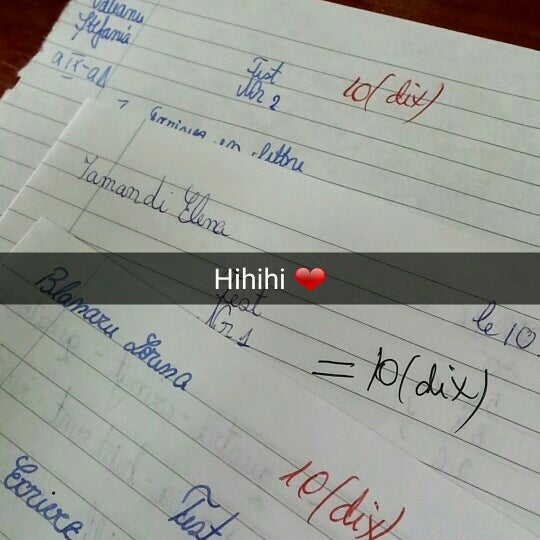 Stefania
a IX-a A
Test
Nr 2
10 (dix)
en lettre
Iamandi Elena
Hihihi ❤
Test
Nr 1
le 10
Blanaru Lorena
= 10 (dix)
10 (dix)
Ecrivez
Test